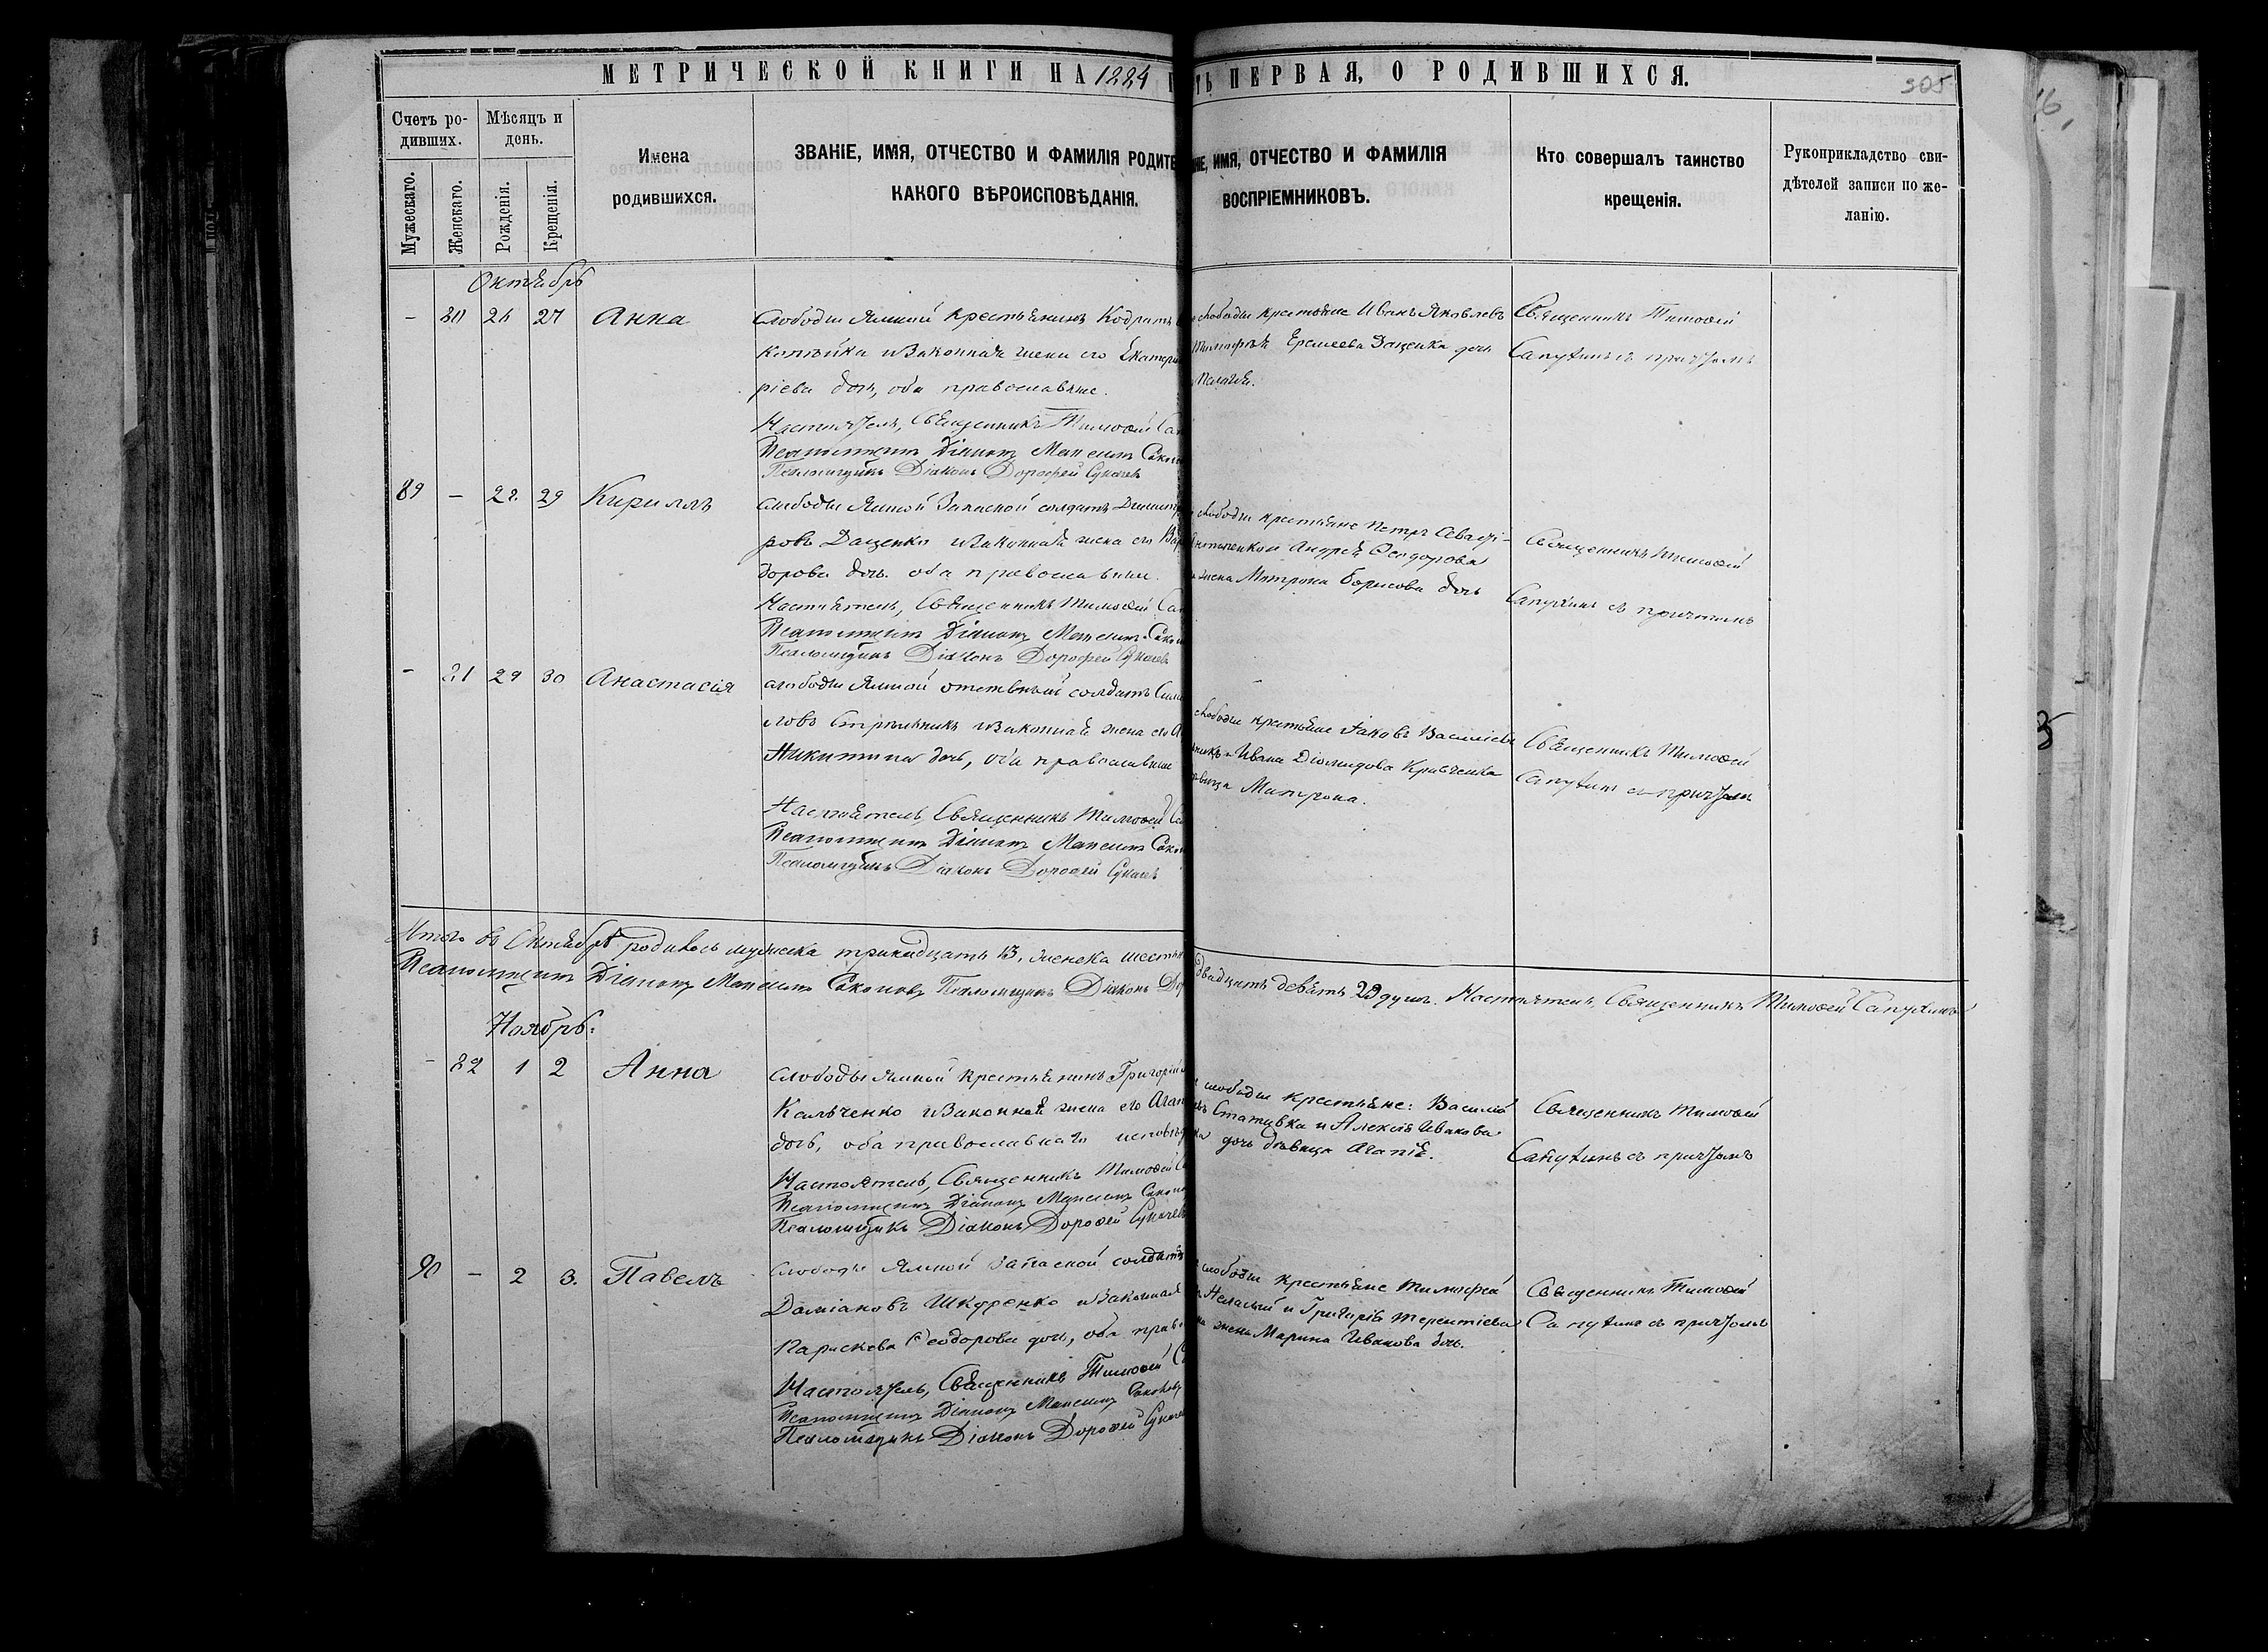 МЕТРИЧЕСКОЙ КНИГИ НА 1884
ТЬ ПЕРВАЯ, О РОДИВШИХСЯ.
305
Счетъ ро-
дившихъ.
Мѣсяцъ и
день.
Мужескаго.
Женскаго.
Рожденія.
Крещенія.
Имена
родившихся.
ЗВАНІЕ, ИМЯ, ОТЧЕСТВО И ФАМИЛІЯ РОДИТЕ
КАКОГО ВѢРОИСПОВѢДАНІЯ.
ИМЯ, ОТЧЕСТВО И ФАМИЛІЯ
ВОСПРІЕМНИКОВЪ.
Кто совершалъ таинство
крещенія.
Рукоприкладство сви-
дѣтелей записи по же-
ланію.
Октябрь
- 80 26 27 Анна
Слободы Ямной крестьянинъ Кодратъ
и законная жена его Екатери
ріева дочь, оба православные.
Настоятель, Священникъ Тимоѳей
Псаломщикъ Діаконъ
Псаломщикъ Діаконъ Дорофей Сукачевъ
слободы крестьяне Иванъ Яковлевъ
Ермеева Даценка дочь
Пелагія.
Священникъ Тимоѳей
Сапухинъ съ причтомъ
89 - 28. 29 Кириллъ
слободы Ямной Запасной солдатъ Димит
ровъ Даценко и законная жена его Вар
дорова дочь. оба православные.
Настоятель, Священникъ Тимоѳей
Псаломщикъ Діаконъ
Псаломщикъ Діаконъ Дорофей Сукачевъ
слободы крестьяне Петръ
Андрея Ѳеодорова
жена Матрона Борисова дочь
Священникъ Тимоѳей
Сапухинъ съ причтомъ
- 81 29 30 Анастасія
слободы Ямной отставный солдатъ
ловъ Стрѣльникъ и законная жена его
Никитина дочь, оба православные
Настоятель, Священникъ Тимоѳей
Псаломщикъ Діаконъ
Псаломщикъ Діаконъ Дороѳей Сукачевъ
слободы крестьяне Іаковъ Василіевъ
никъ и Ивана Діомидова Кравченка
вица Матрона.
Священникъ Тимоѳей
Сапухинъ съ причтомъ
Итого въ Октябрѣ родилось мужеска тринадцать 13, женска шест
Псаломщикъ Діаконъ Псаломщикъ Діаконъ До
двадцать девять 29 душъ. Настоятель, Священникъ Тимоѳей Сапухинъ
Ноябрь.
- 82 1 2 Анна
Слободы Ямной крестьянинъ Григорій
Кальченко и законная жена его Агап
дочь, оба православнаго исповѣд
Настоятель, Священникъ Тимоѳей
Псаломщикъ Діаконъ
Псаломщикъ Діаконъ Дороѳей Сукачевъ
слободы крестьяне: Василій
Стативка и Алексія Иванова
дочь дѣвица Агапія.
Священникъ Тимоѳей
Сапухинъ съ причтомъ
90 - 2 3. Павелъ
Слободы Ямной Запасной солдатъ
Даміановъ Шкуренко и законная
Параскева Ѳеодорова дочь, оба прав
Настоятель, Священникъ Тимоѳей
Псаломщикъ Діаконъ
Псаломщикъ Діаконъ Дороѳей Сукачев
слободы крестьяне Тимофей
и Григорія Терентіева
жена Марина Иванова дочь.
Священникъ Тимоѳей
Сапухинъ съ причтомъ